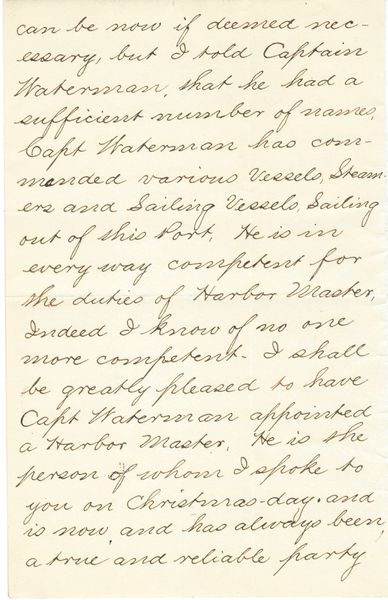 can be now if deemed nec-
essary, but I told Captain
Waterman, that he had a
sufficient number of names.
Capt Waterman has com-
manded various Vessels, Steam-
ers and Sailing Vessels, Sailing
out of this Port. He is in
every way competent for
the duties of Harbor Master,
Indeed I know of no one
more competent. I shall
be greatly pleased to have
Capt Waterman appointed
a Harbor Master. He is the
person of whom I spoke to
you on Christmas-day. and
is now, and has always been,
a true and reliable party